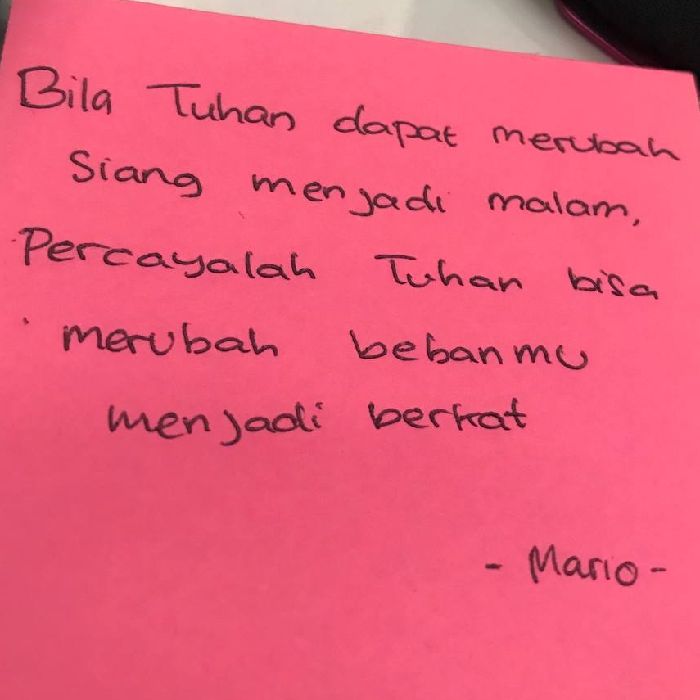 Bila Tuhan dapat merubah
Siang menjadi malam,
Percayalah Tuhan bisa
merubah bebanmu
menjadi berkat
- Mario -